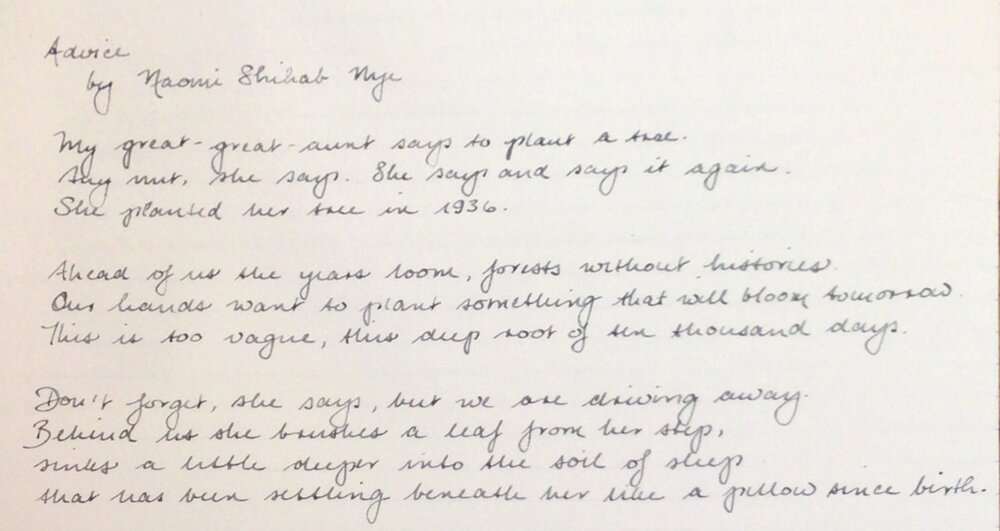 Advice
by Naomi Shihab Nye
My great-great-aunt says to plant a tree.
Say nut, she says. She says and says it again.
She planted her tree in 1936.
Ahead of us the years loom, forests without histories.
Our hands want to plant something that will bloom tomorrow.
This is too vague, this deep root of ten thousand days.
Don't forget, she says, but we are driving away.
Behind us she brushes a leaf from her step,
sinks a little deeper into the soil of sleep
that has been settling beneath her like a pillow since birth.